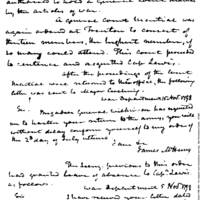 by the articles of war.
A general Court Martial was
again ordered at Trenton to consist of
thirteen members, the highest number, if
so many could attend. This Court proceeded
to sentence and acquitted Capt. Lewis.
After the proceedings of the Court
Martial were returned to this office, the following
letter was sent to Major
War Department 15 Nov 1798
Sir. Brigadier General Wilkinson has required
me to hasten your return to the army; you will
without delay conform yourself to my order
of the 2d of July ultimo.
I am Sir
James McHenry
previous to this order
had granted leave of absence to Capt. Lewis.
as follows.
War Department 5 Nov 1798
Sir I have received your letter dated